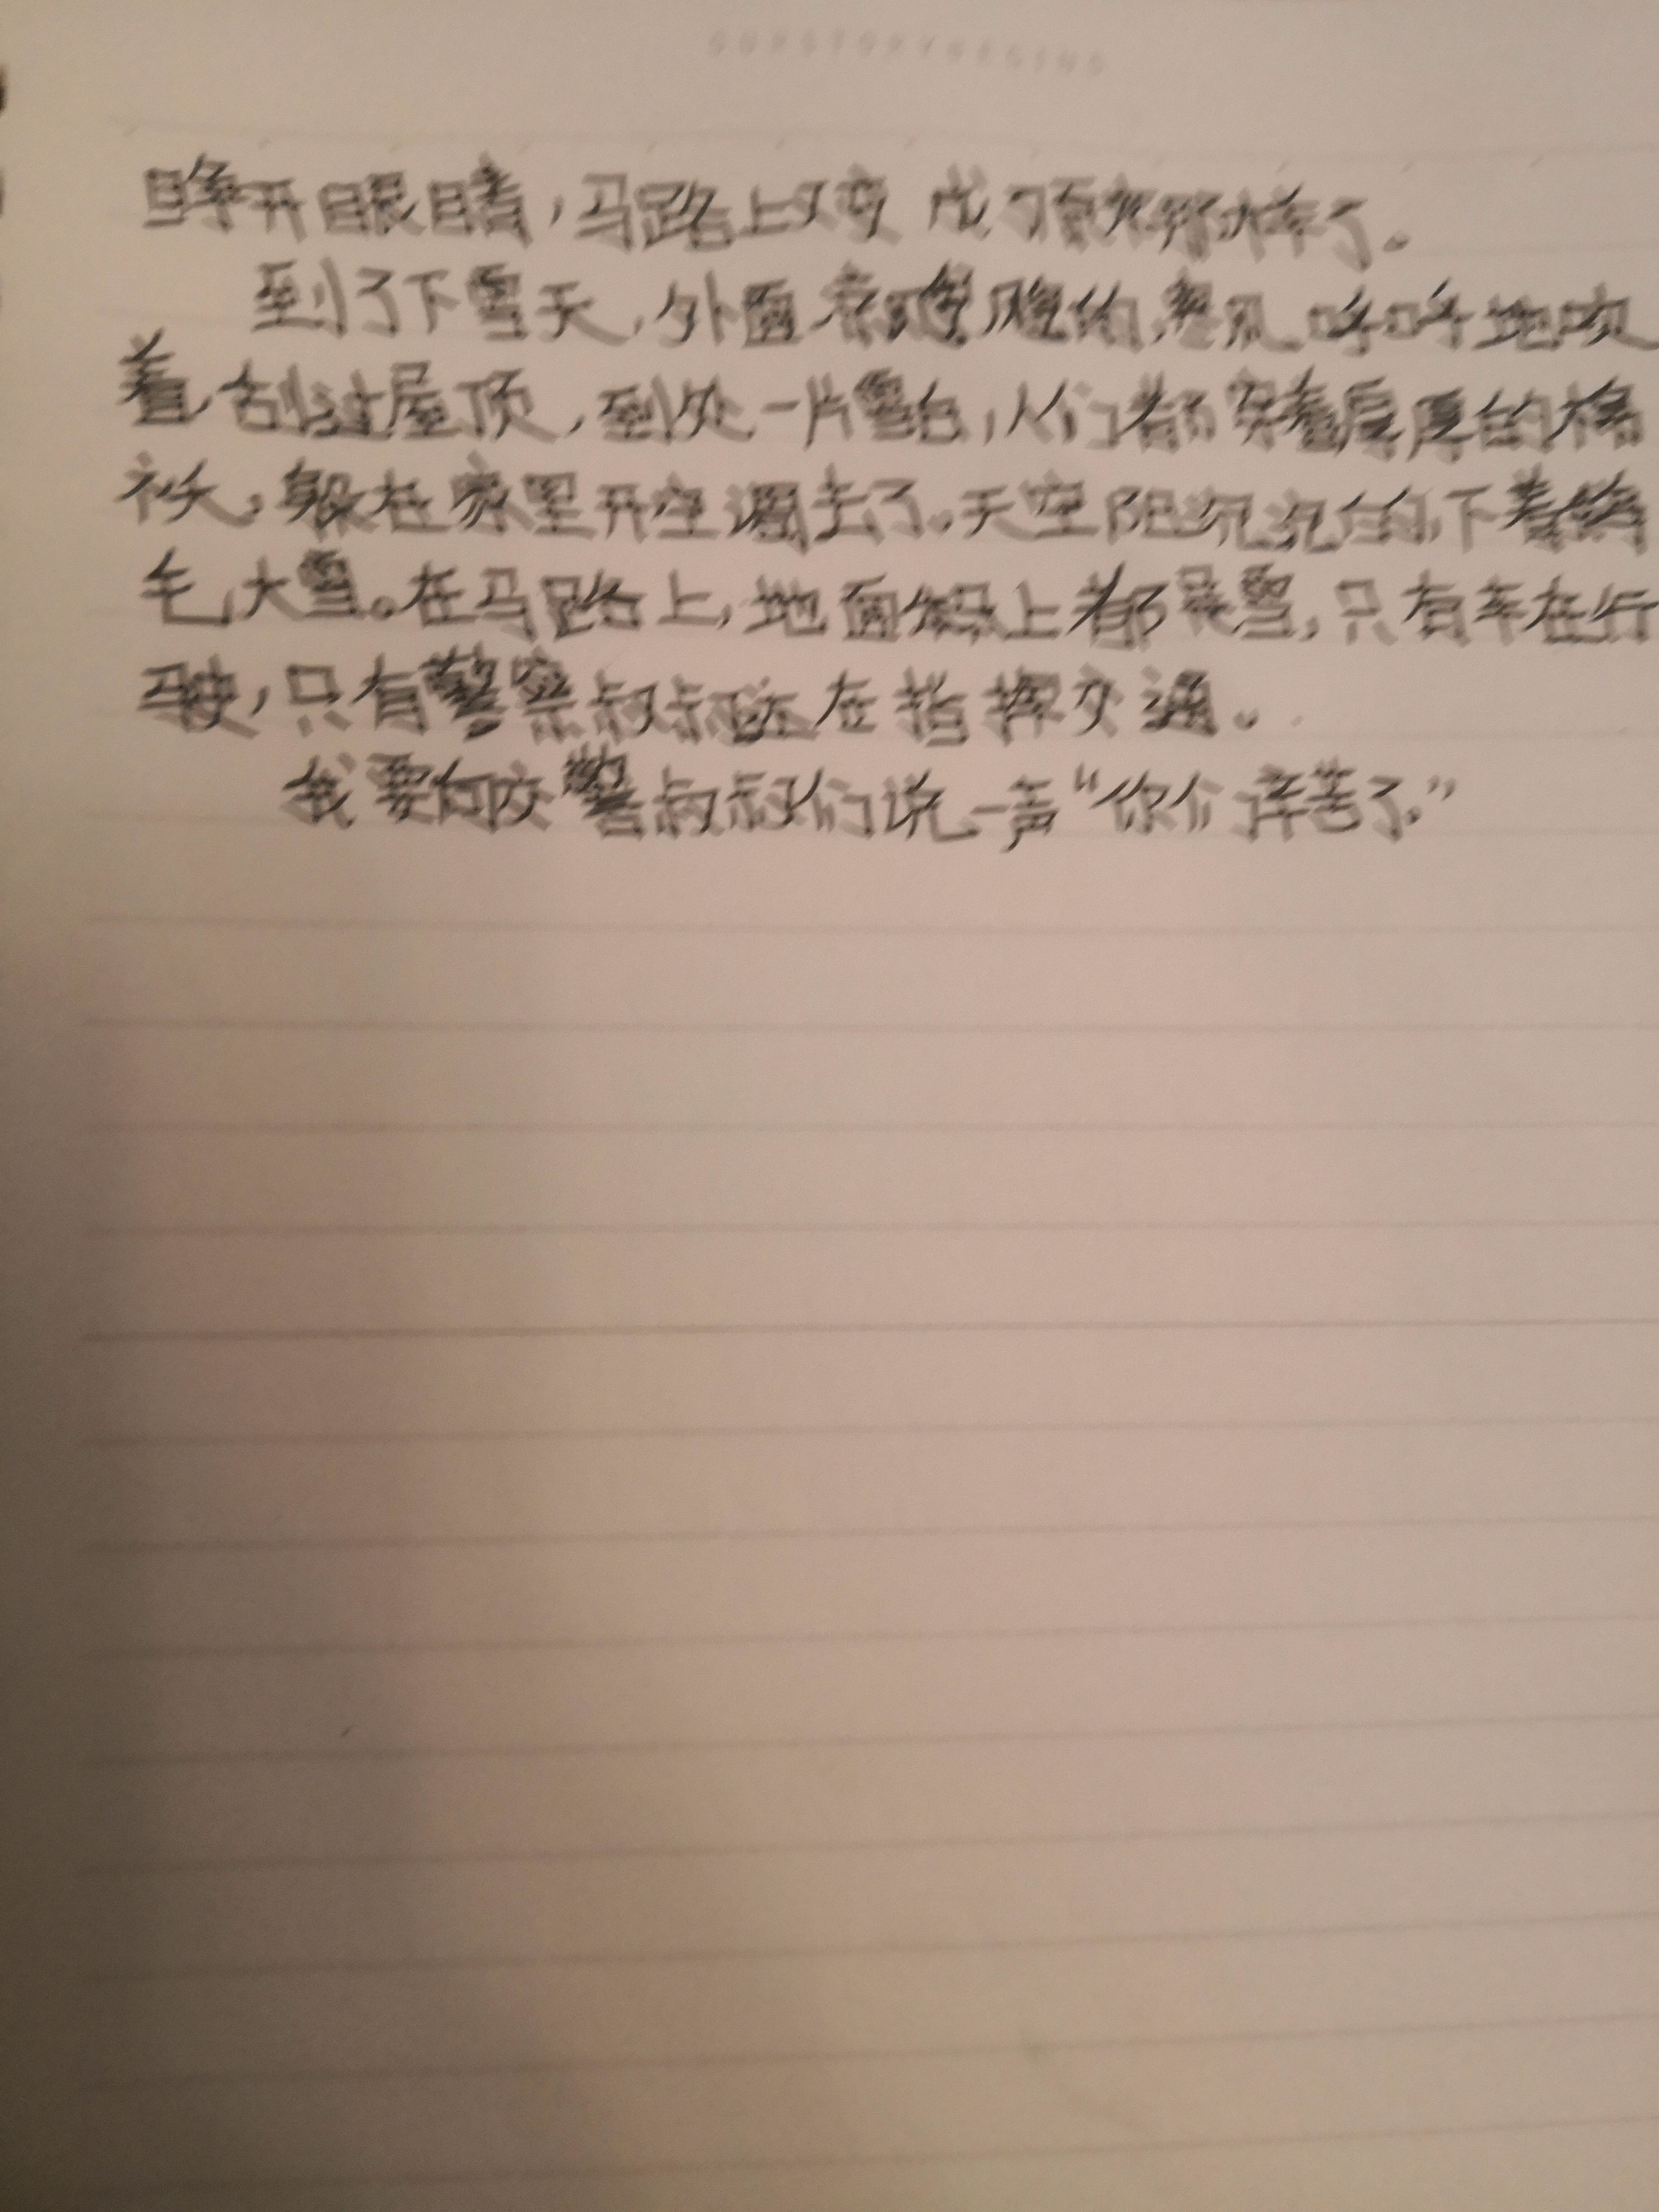 OURSTORYBEGINS
睁开眼睛，马路上又变成了原来那样了。
到了下雪天，外面的寒风呼呼地吹
着，刮过屋顶，到处一片雪白，人们都穿着厚厚的棉
袄，躲在家里开空调去了。天空阴沉沉的，下着鹅
毛大雪。在马路上，地面上都是雪，只有车在行
驶，只有警察叔叔还在指挥交通。
我要向交警叔叔们说一声“你们辛苦了。”